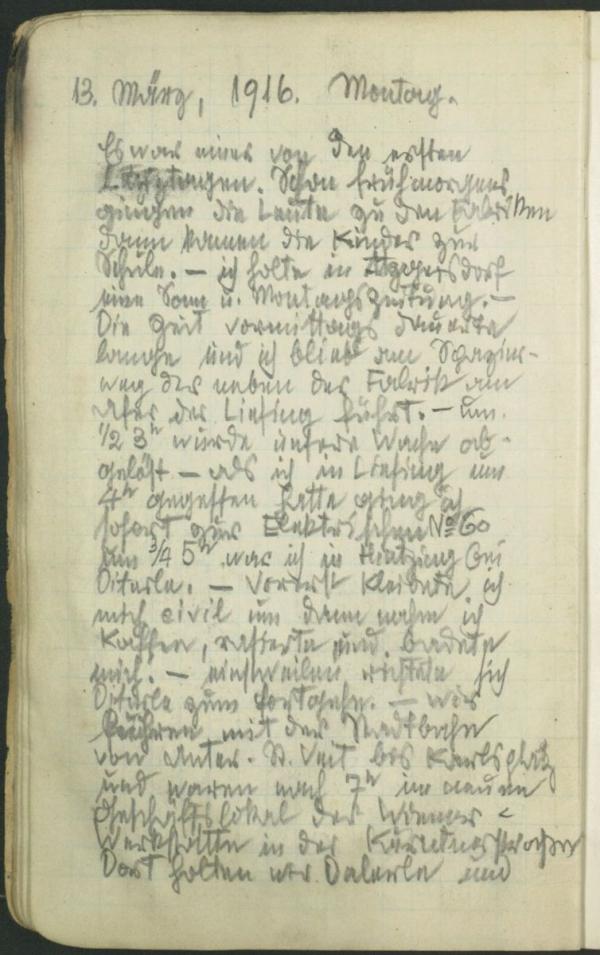 13. März, 1916. Montag.
Es war einer von den ersten
Lenztagen. Schon frühmorgens
giengen die Leute zu den Fabriken
dann kamen die Kinder zur
Schule. – ich holte in Atzgersdorf
eine Sonn u. Montagszeitung. –
Die Zeit vormittags dauerte
lange und ich blieb am Spazier-
weg der neben der Fabrik am
Ufer der Liesing führt. – um.
1/2 3h wurde unsere Wache ab-
gelöst – als ich in Liesing um
4h gegessen hatte ging ich
sofort zur Elektrischen № 60
um 3/4 5h war ich in Hietzing bei
. – Vorerst kleidete ich
mich civil um dann nahm ich
Kaffee, rasierte und badete
mich. – einstweilen richtete sich
zum fortgehn. – wir
fuhren mit der Stadtbahn
von Unter-St. Veit bis Karlsplatz
und waren nach 7h im neuen
Geschäftslokal der Wiener-
werkstätte in der Kärntnerstrasse
Dort holten wir und